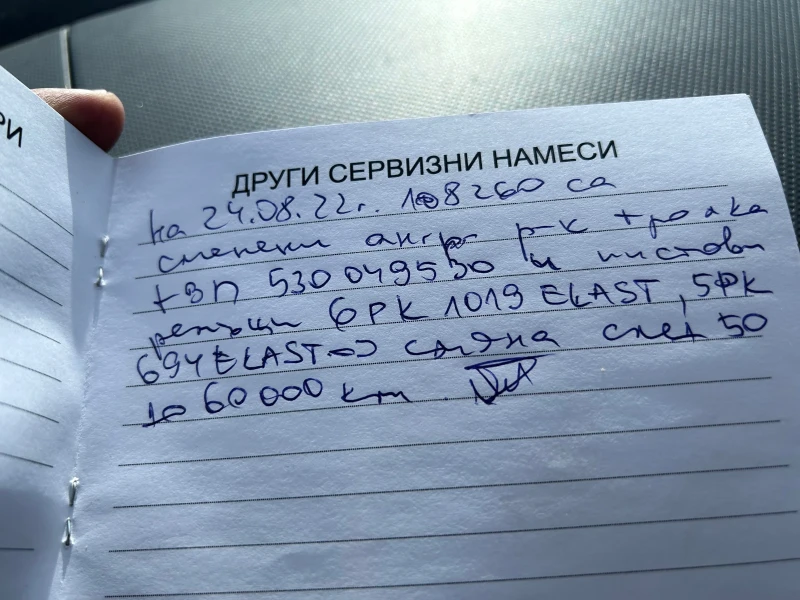 РИ
ДРУГИ СЕРВИЗНИ НАМЕСИ
на 24.08.22г. 108260 са
сменени ангр р-к + ролка
+ВП 530 0495 30 и пистови
ремъци 6PK 1019 ELAST, 5PK
694 ELAST => смяна след 50
то 60 000 km.